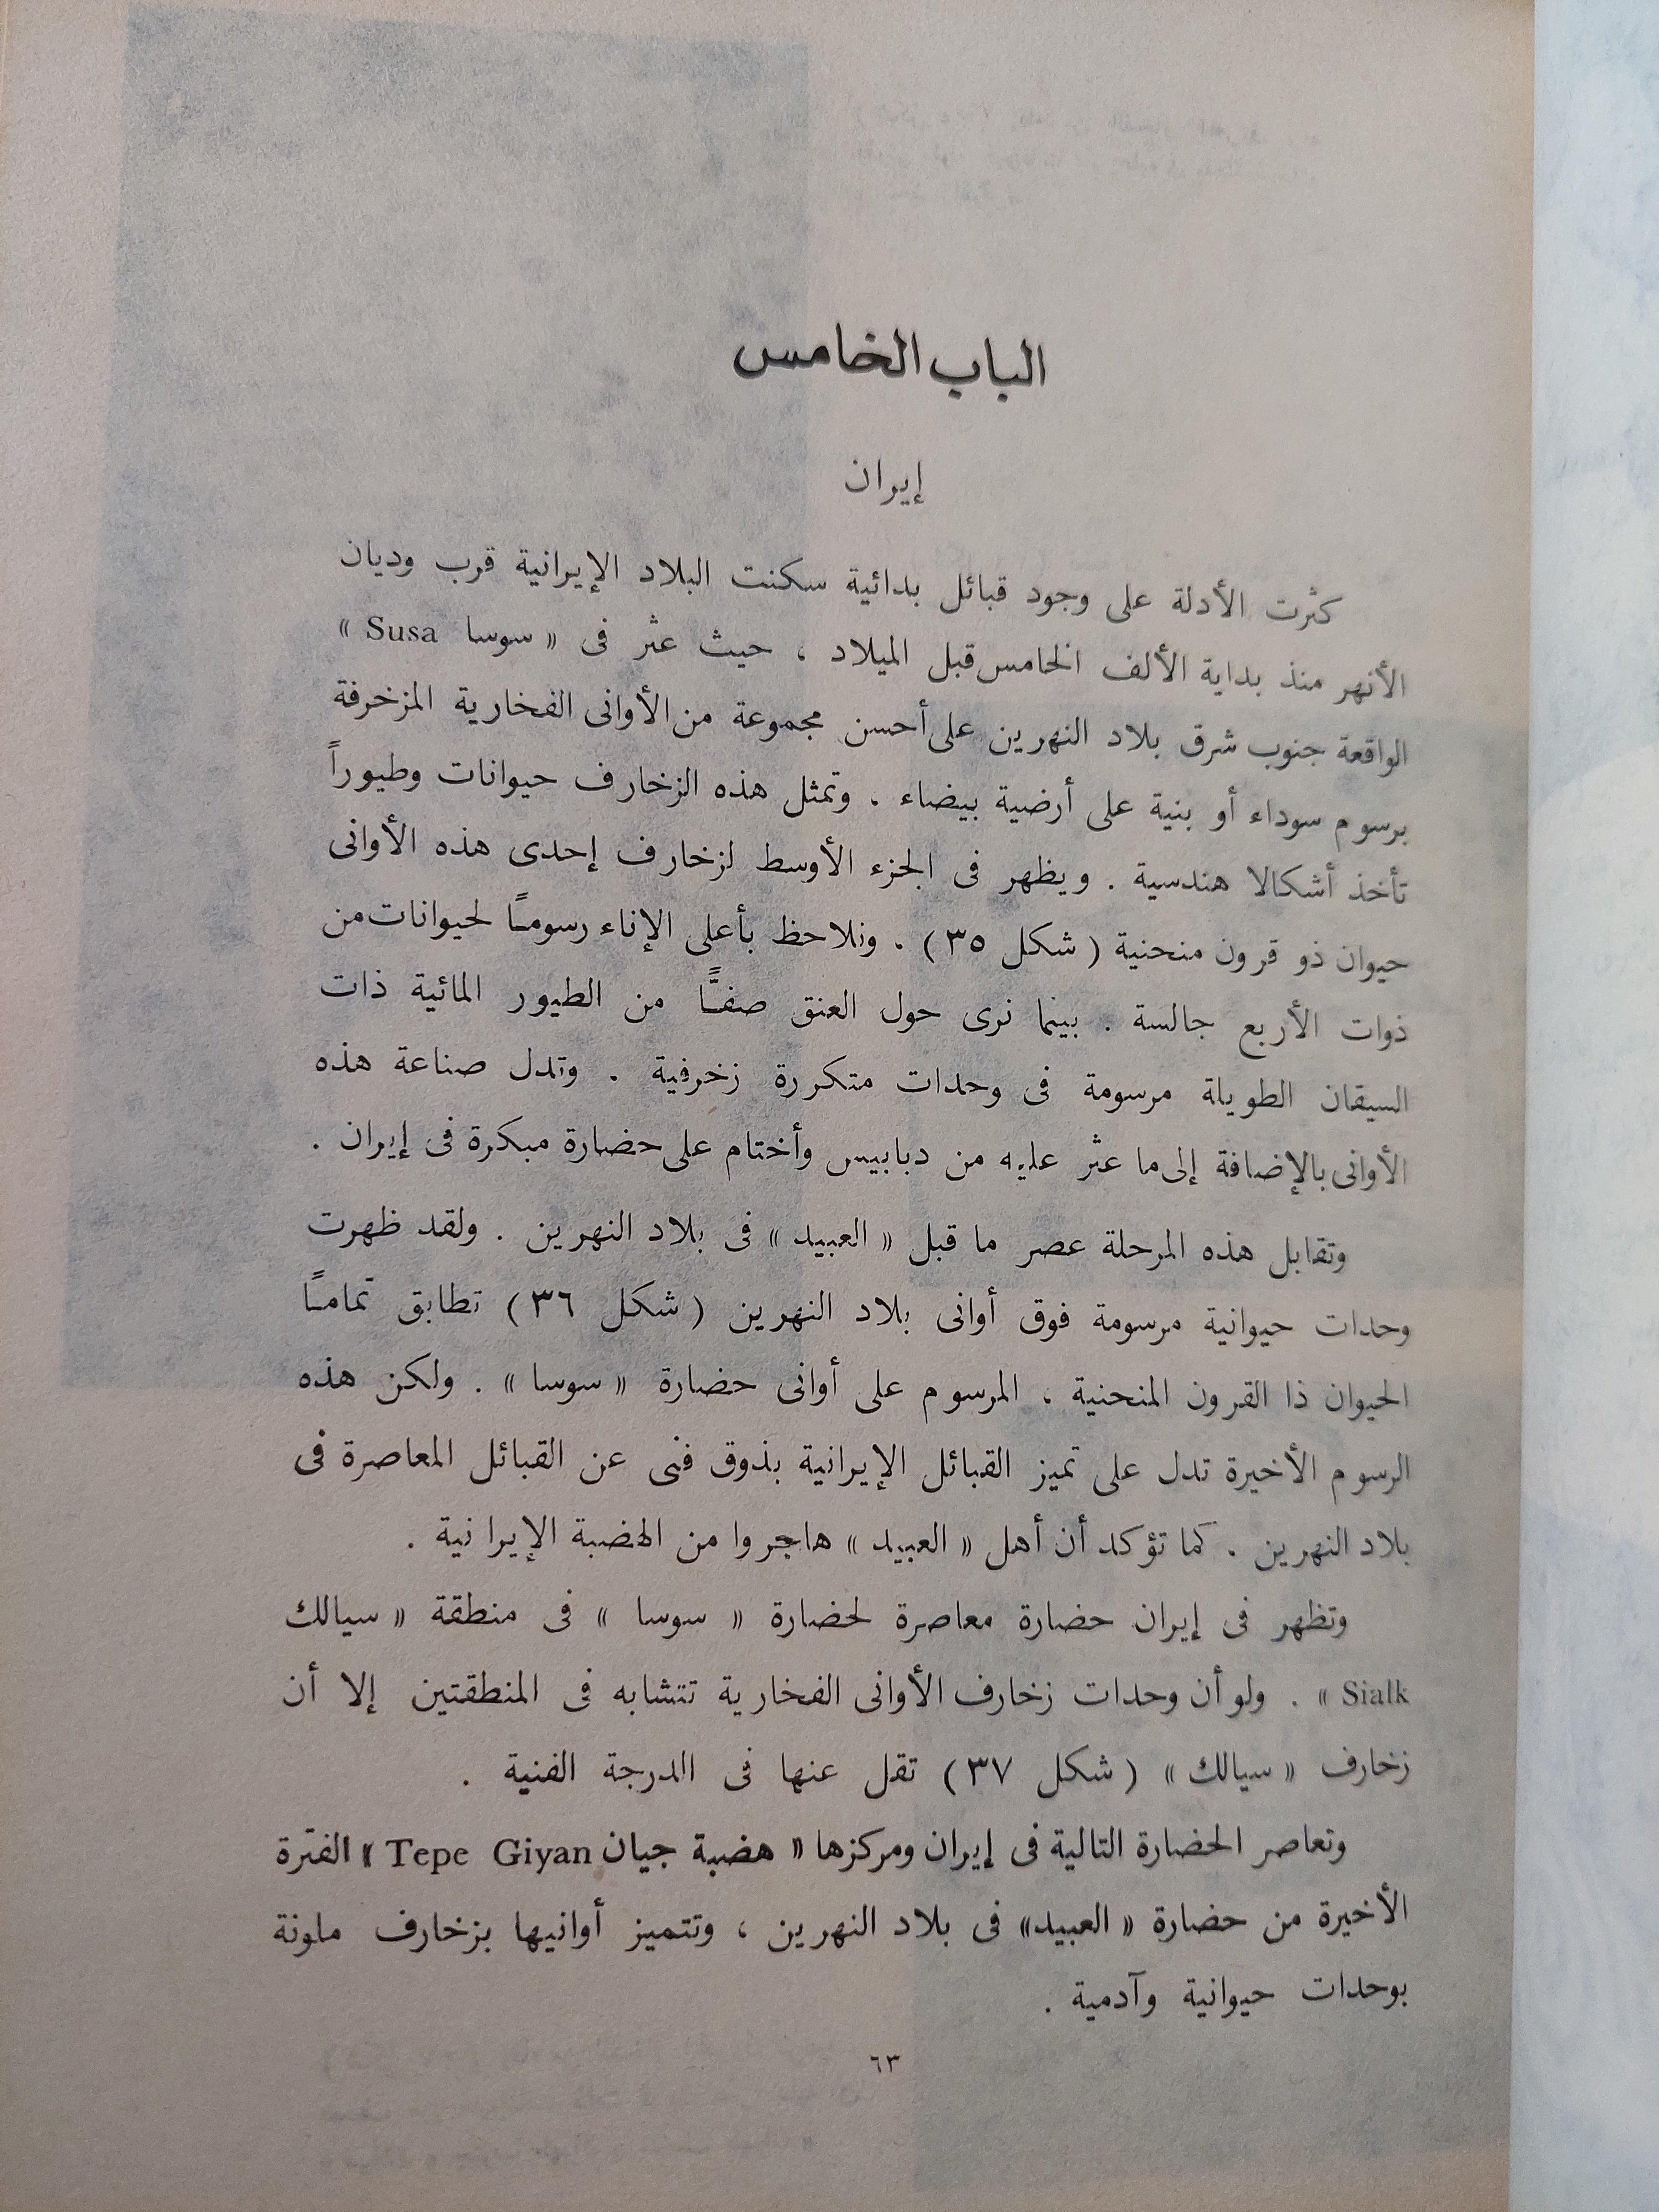 الباب الخامس
إيران
كثرت الأدلة على وجود قبائل بدائية سكنت البلاد الإيرانية قرب وديان
الأنهر منذ بداية الألف الخامس قبل الميلاد ، حيث عثر فى « سوسا Susa »
الواقعة جنوب شرق بلاد النهرين على أحسن مجموعة من الأوانى الفخارية المزخرفة
برسوم سوداء أو بنية على أرضية بيضاء . وتمثل هذه الزخارف حيوانات وطيوراً
تأخذ أشكالا هندسية . ويظهر فى الجزء الأوسط لزخارف إحدى هذه الأوانى
حيوان ذو قرون منحنية ( شكل ٣٥ ) . ونلاحظ بأعلى الإناء رسومًا لحيوانات من
ذوات الأربع جالسة . بينما نرى حول العنق صفًّا من الطيور المائية ذات
السيقان الطويلة مرسومة فى وحدات متكررة زخرفية . وتدل صناعة هذه
الأوانى بالإضافة إلى ما عثر عليه من دبابيس وأختام على حضارة مبكرة فى إيران .
وتقابل هذه المرحلة عصر ما قبل « العبيد » فى بلاد النهرين . ولقد ظهرت
وحدات حيوانية مرسومة فوق أوانى بلاد النهرين ( شكل ٣٦ ) تطابق تمامًا
الحيوان ذا القرون المنحنية ، المرسوم على أوانى حضارة « سوسا » . ولكن هذه
الرسوم الأخيرة تدل على تميز القبائل الإيرانية بذوق فنى عن القبائل المعاصرة فى
بلاد النهرين . كما تؤكد أن أهل « العبيد » هاجروا من الهضبة الإيرانية .
وتظهر فى إيران حضارة معاصرة لحضارة « سوسا » فى منطقة « سيالك
Sialk » . ولو أن وحدات زخارف الأوانى الفخارية تتشابه فى المنطقتين إلا أن
زخارف « سيالك » ( شكل ٣٧ ) تقل عنها فى الدرجة الفنية .
وتعاصر الحضارة التالية فى إيران ومركزها « هضبة جيان Tepe Giyan » الفترة
الأخيرة من حضارة « العبيد» فى بلاد النهرين ، وتتميز أوانيها بزخارف ملونة
بوحدات حيوانية وآدمية .
٦٣